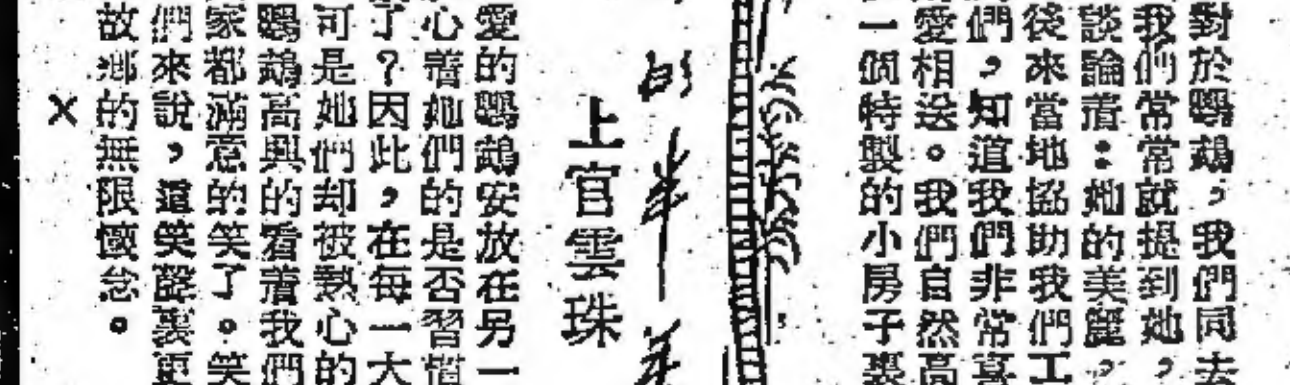 對於鸚鵡，我們同去
我們常常就提到她，
談論着：她的美麗，
後來當地協助我們工
們，知道我們非常喜
愛相送。我們自然高
一個特製的小房子裏
的
上官雲珠
愛的鸚鵡安放在另一
心着她們的是否習慣
了？因此，在每一大
可是她們却被熱心的
鸚鵡高興的看着我們
家都滿意的笑了。笑
們來說，這笑聲裏更
故鄉的無限懷念。
X